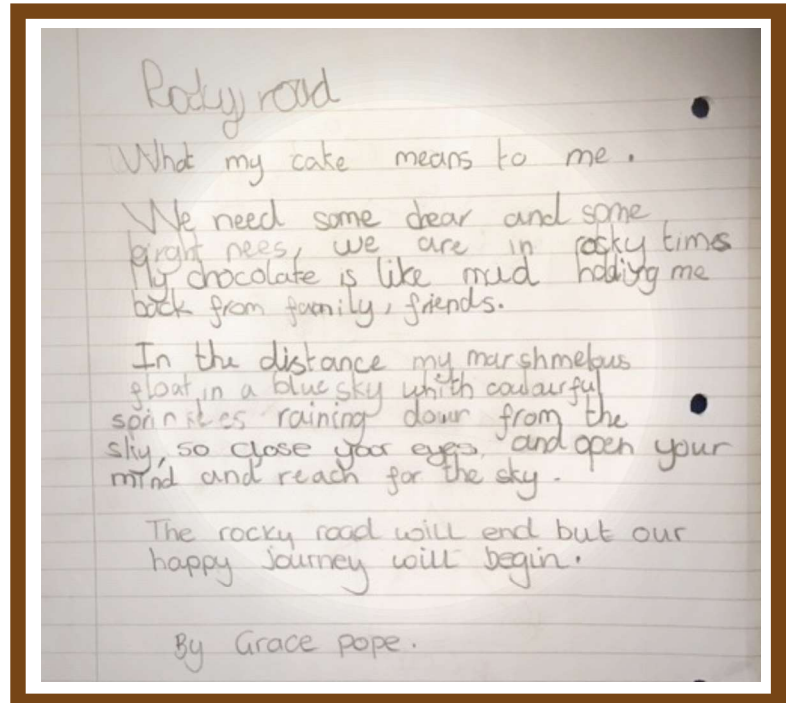 Rocky road
What my cake means to me.
We need some chear and some
birght nees, we are in rocky times
My chocolate is like mud holding me
back from family, friends.
In the distance my marshmelous
float in a blue sky whith coulourful
sprinkles raining down from the
sky, so close your eyes, and open your
mind and reach for the sky.
The rocky road will end but our
happy journey will begin.
By Grace pope.